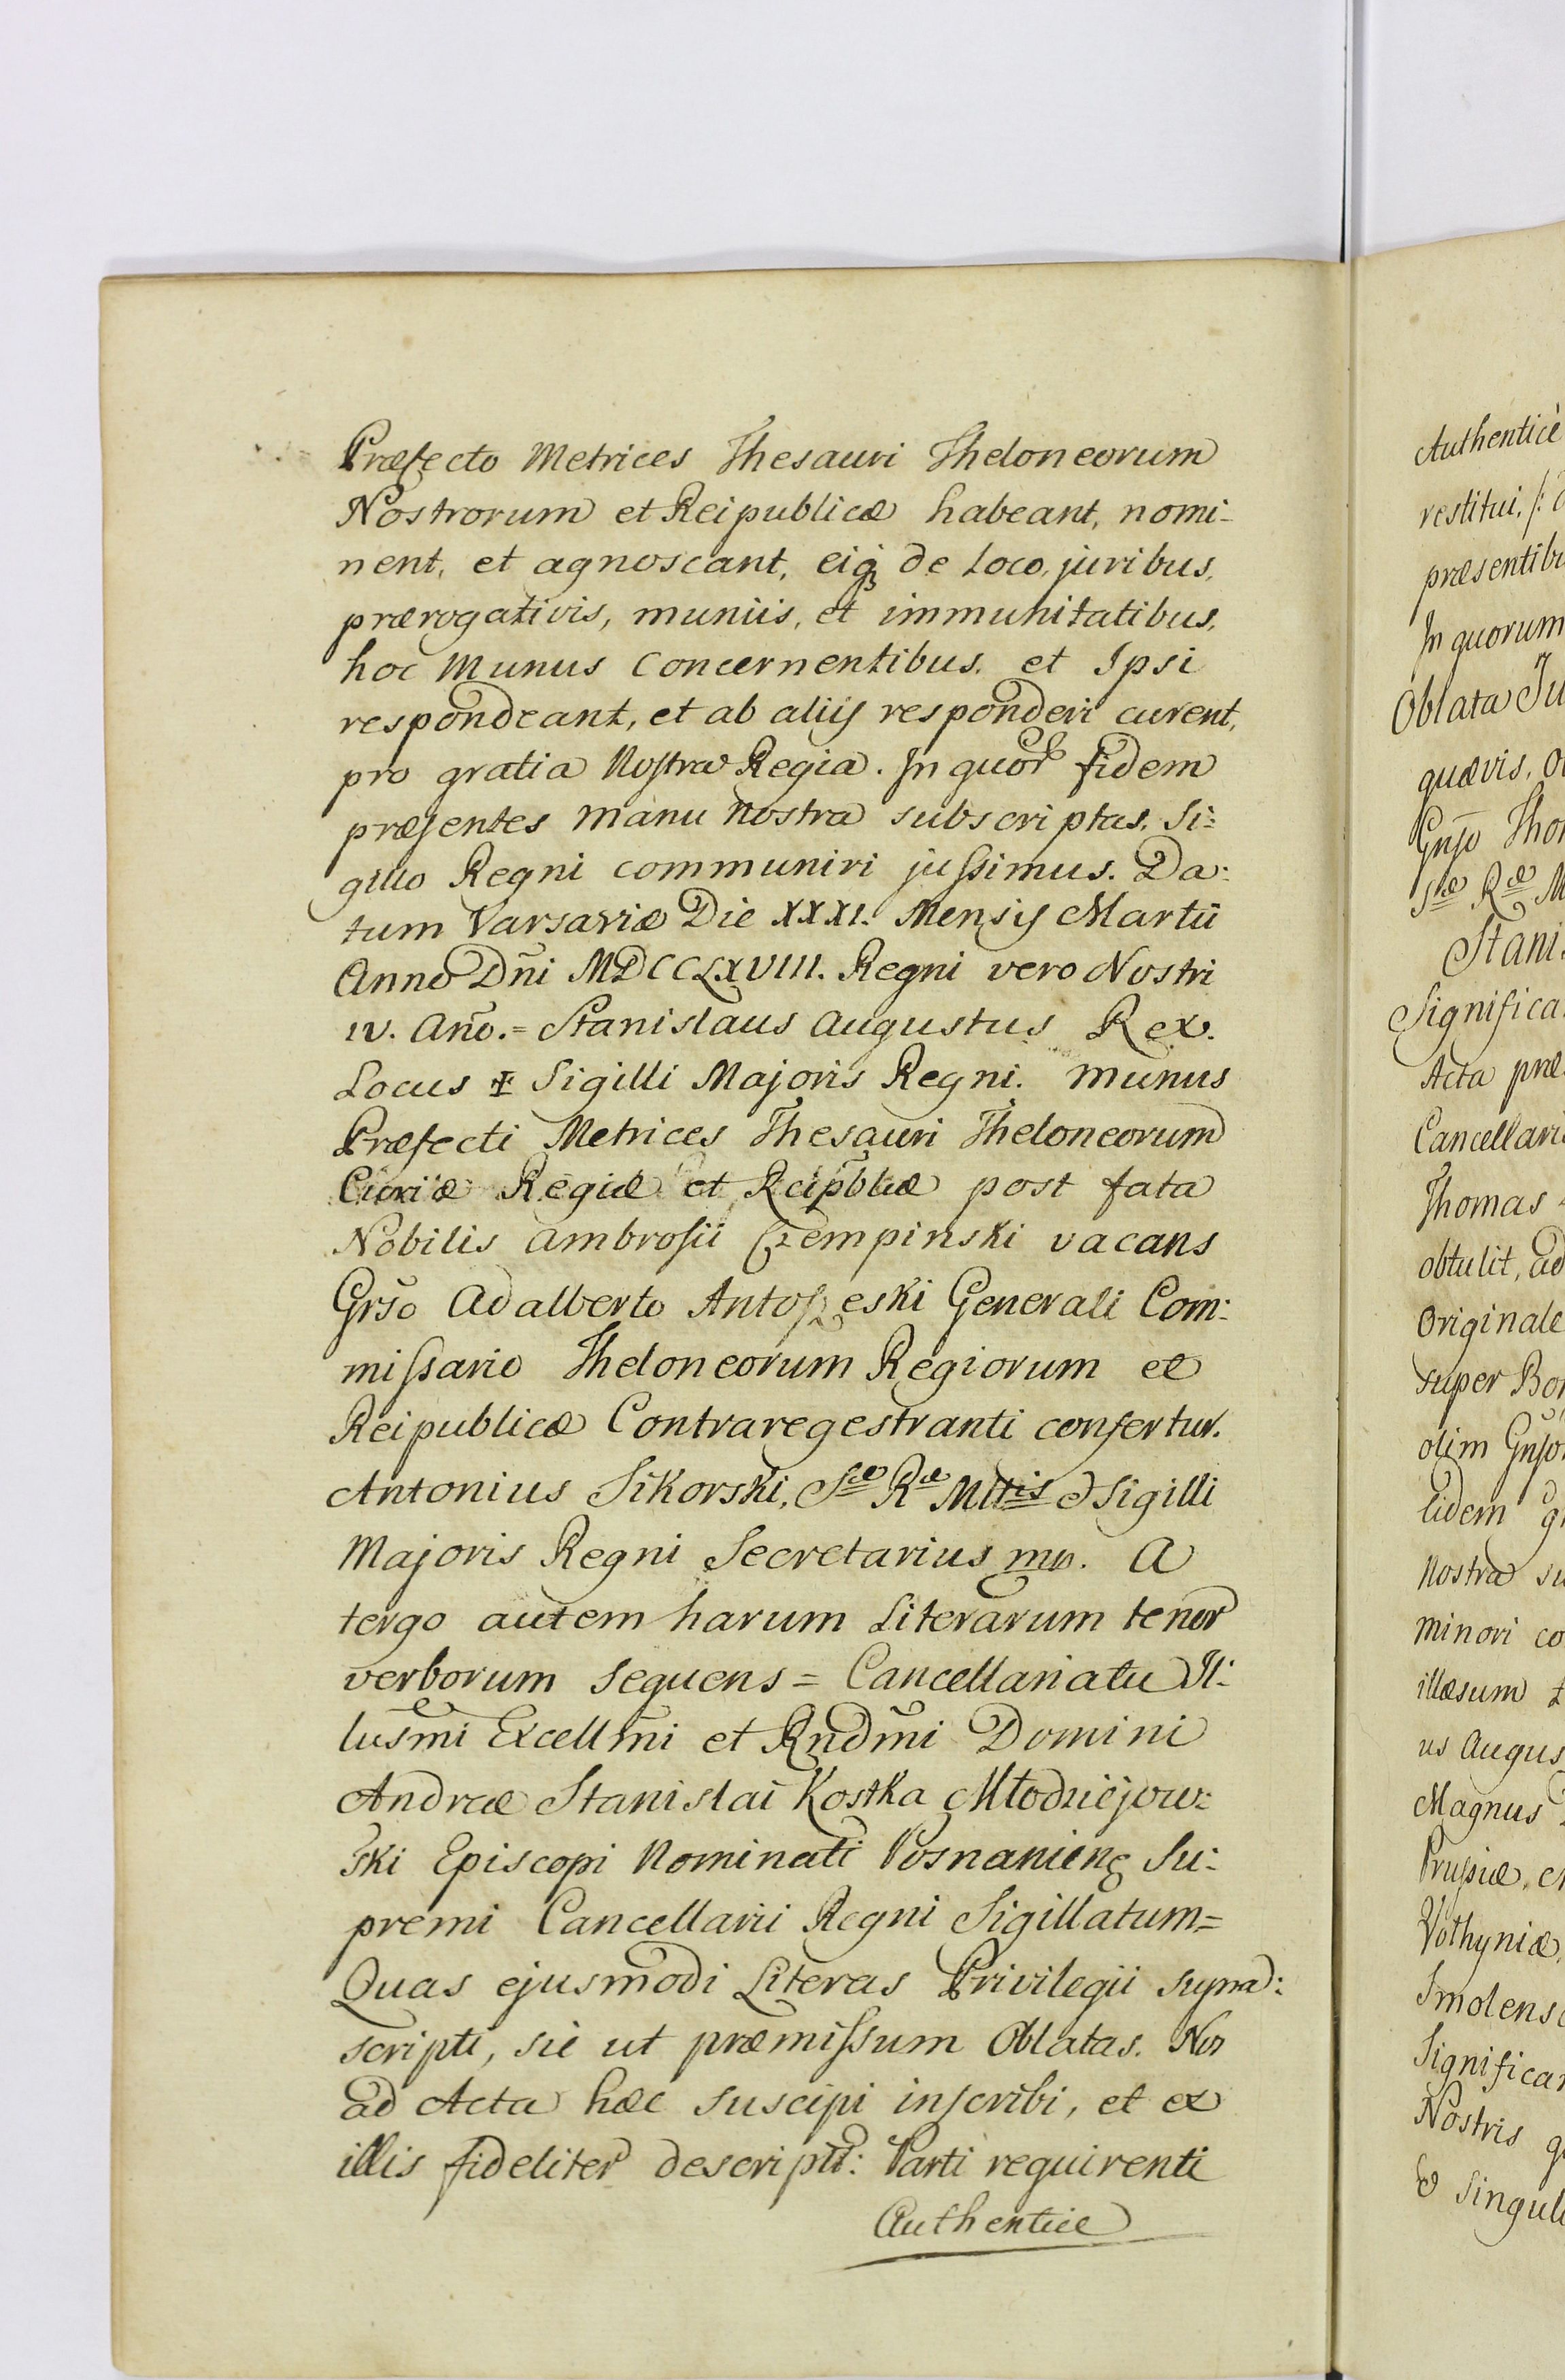 Præfecto Metrices Thesauri Theloneorum
Nostrorum et Reipublicæ habeant, nomi-
nent, et agnoscant, eiq̃ de loco, juribus,
prærogativis, muniis, et immunitatibus,
hoc Munus Concernentibus. et Ipsi
respondeant, et ab aliis responderi curent,
pro gratia Nostra Regia. In quor fidem
præsentes manu Nostra subscriptas. Si=
gillo Regni communiri jussimus. Da:
tum Varsaviæ Die XXXI. Mensis Martii
Anno Dñi MDCCLXVIII. Regni vero Nostri
IV. Año.= Stanislaus Augustus Rex.
Locus ✠ Sigilli Majoris Regni. Munus
Præfecti Metrices Thesauri Theloneorum
Curiæ Regiæ et Reipblicæ post fata
Nobilis Ambrosii Czempinski vacans
Grso Adalberto Antoszeski Generali Com:
missario Theloneorum Regiorum et
Reipublicæ Contraregestranti confertur.
Antonius Sikorski, Sæ Ræ Mttis & Sigilli
Majoris Regni Secretarius mp. A
tergo autem harum Literarum tenor
verborum sequens = Cancellariatu Il:
lusmi Excellmi et Rndmi Domini
Andreæ Stanislai Kostka Młodziejow:
ski Episcopi Nominati Posnanieng Su:
premi Cancellarii Regni Sigillatum=
Quas ejusmodi Literas Privilegii supra:
scripti, sic ut præmissum Oblatas. Nos
ad Acta hæc suscipi inscribi, et ex
illis fideliter descriptt: Parti requirenti
Authentice
Authenticè
restitui,
In quorum
Oblata
quævis,
Gnso
Sæ Ræ M
Stani
Significa
Acta præ
Cancellari
Thomas
obtulit, ad
Originale
super
olim
Nostra su
minori co
illæsum
us Augus
Magnus
Prussiæ,
Volhyniæ,
Smolensc
Significa
Nostris
& singuli